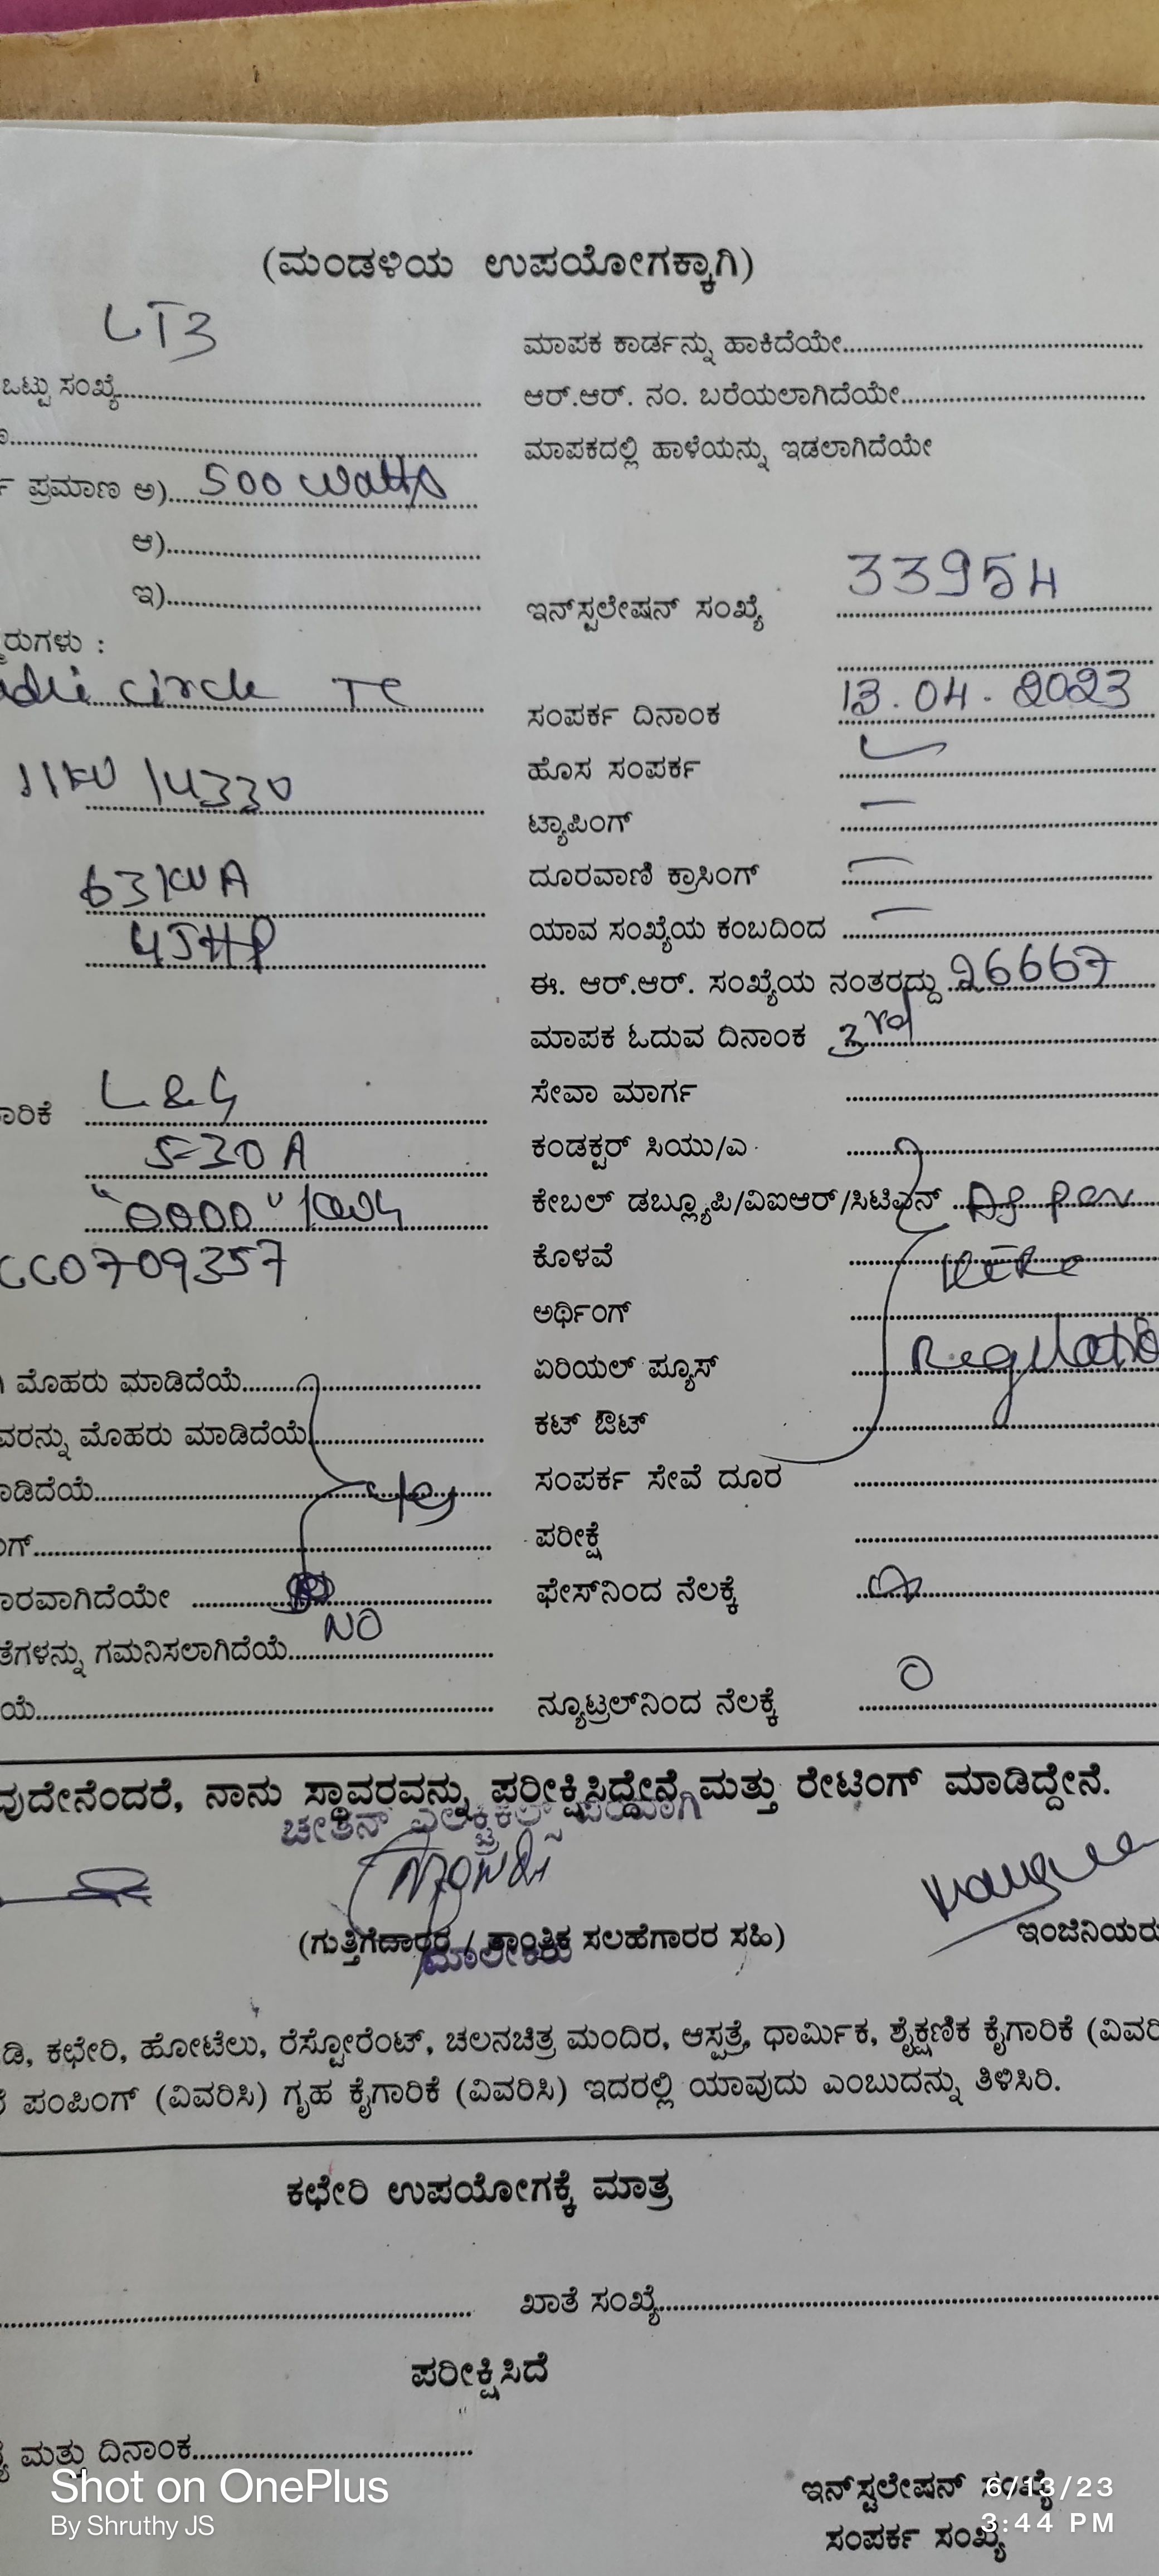 (ಮಂಡಳಿಯ ಉಪಯೋಗಕ್ಕಾಗಿ)
LT3
ಮಾಪಕ ಕಾರ್ಡನ್ನು ಹಾಕಿದೆಯೇ
ಒಟ್ಟು ಸಂಖ್ಯೆ
ಆರ್.ಆರ್. ನಂ. ಬರೆಯಲಾಗಿದೆಯೇ
ಮಾಪಕದಲ್ಲಿ ಹಾಳೆಯನ್ನು ಇಡಲಾಗಿದೆಯೇ
ಪ್ರಮಾಣ ಅ) 500 watts
ಆ)
ಇ)
ಇನ್‌ಸ್ಟಲೇಷನ್ ಸಂಖ್ಯೆ 33954
ರುಗಳು :
circle TC
ಸಂಪರ್ಕ ದಿನಾಂಕ 13.04.2023
ಹೊಸ ಸಂಪರ್ಕ
11KV / 4330
ಟ್ಯಾಪಿಂಗ್
63KVA
ದೂರವಾಣಿ ಕ್ರಾಸಿಂಗ್
45HP
ಯಾವ ಸಂಖ್ಯೆಯ ಕಂಬದಿಂದ
ಈ. ಆರ್.ಆರ್. ಸಂಖ್ಯೆಯ ನಂತರದ್ದು 26667
ಮಾಪಕ ಓದುವ ದಿನಾಂಕ 3rd
ಸೇವಾ ಮಾರ್ಗ
ಾರಿಕೆ L&G
5-30 A
ಕಂಡಕ್ಟರ್ ಸಿಯು/ಎ
"0000"
ಕೇಬಲ್ ಡಬ್ಲ್ಯೂಪಿ/ವಿಐಆರ್/ಸಿಟಿಎಸ್ As per
CC0709357
ಕೊಳವೆ
ಅರ್ಥಿಂಗ್
ಮೊಹರು ಮಾಡಿದೆಯೆ
ಏರಿಯಲ್ ಪ್ಯೂಸ್ Regulation
ವರನ್ನು ಮೊಹರು ಮಾಡಿದೆಯೆ
ಕಟ್ ಔಟ್
ಾಡಿದೆಯೆ
ಸಂಪರ್ಕ ಸೇವೆ ದೂರ
ಂಗ್
ಪರೀಕ್ಷೆ
ಾರವಾಗಿದೆಯೇ
ಫೇಸ್‌ನಿಂದ ನೆಲಕ್ಕೆ
ತೆಗಳನ್ನು ಗಮನಿಸಲಾಗಿದೆಯೆ NO
ಯೆ
ನ್ಯೂಟ್ರಲ್‌ನಿಂದ ನೆಲಕ್ಕೆ 0
ವುದೇನೆಂದರೆ, ನಾನು ಸ್ಥಾವರವನ್ನು ಪರೀಕ್ಷಿಸಿದ್ದೇನೆ ಮತ್ತು ರೇಟಿಂಗ್ ಮಾಡಿದ್ದೇನೆ.
ಚೇತನ್ ಎಲೆಕ್ಟ್ರಿಕಲ್ಸ್ ಪರವಾಗಿ
(ಗುತ್ತಿಗೆದಾರರ / ತಾಂತ್ರಿಕ ಸಲಹೆಗಾರರ ಸಹಿ)
ಇಂಜಿನಿಯರು
ಮಾಲೀಕರು
ಡಿ, ಕಛೇರಿ, ಹೋಟೆಲು, ರೆಸ್ಟೋರೆಂಟ್, ಚಲನಚಿತ್ರ ಮಂದಿರ, ಆಸ್ಪತ್ರೆ, ಧಾರ್ಮಿಕ, ಶೈಕ್ಷಣಿಕ ಕೈಗಾರಿಕೆ (ವಿವರಿ
ಪಂಪಿಂಗ್ (ವಿವರಿಸಿ) ಗೃಹ ಕೈಗಾರಿಕೆ (ವಿವರಿಸಿ) ಇದರಲ್ಲಿ ಯಾವುದು ಎಂಬುದನ್ನು ತಿಳಿಸಿರಿ.
ಕಛೇರಿ ಉಪಯೋಗಕ್ಕೆ ಮಾತ್ರ
ಖಾತೆ ಸಂಖ್ಯೆ
ಪರೀಕ್ಷಿಸಿದೆ
ಮತ್ತು ದಿನಾಂಕ
Shot on OnePlus
By Shruthy JS
ಇನ್‌ಸ್ಟಲೇಷನ್ ಸಂಖ್ಯೆ
6/13/23
3:44 PM
ಸಂಪರ್ಕ ಸಂಖ್ಯೆ